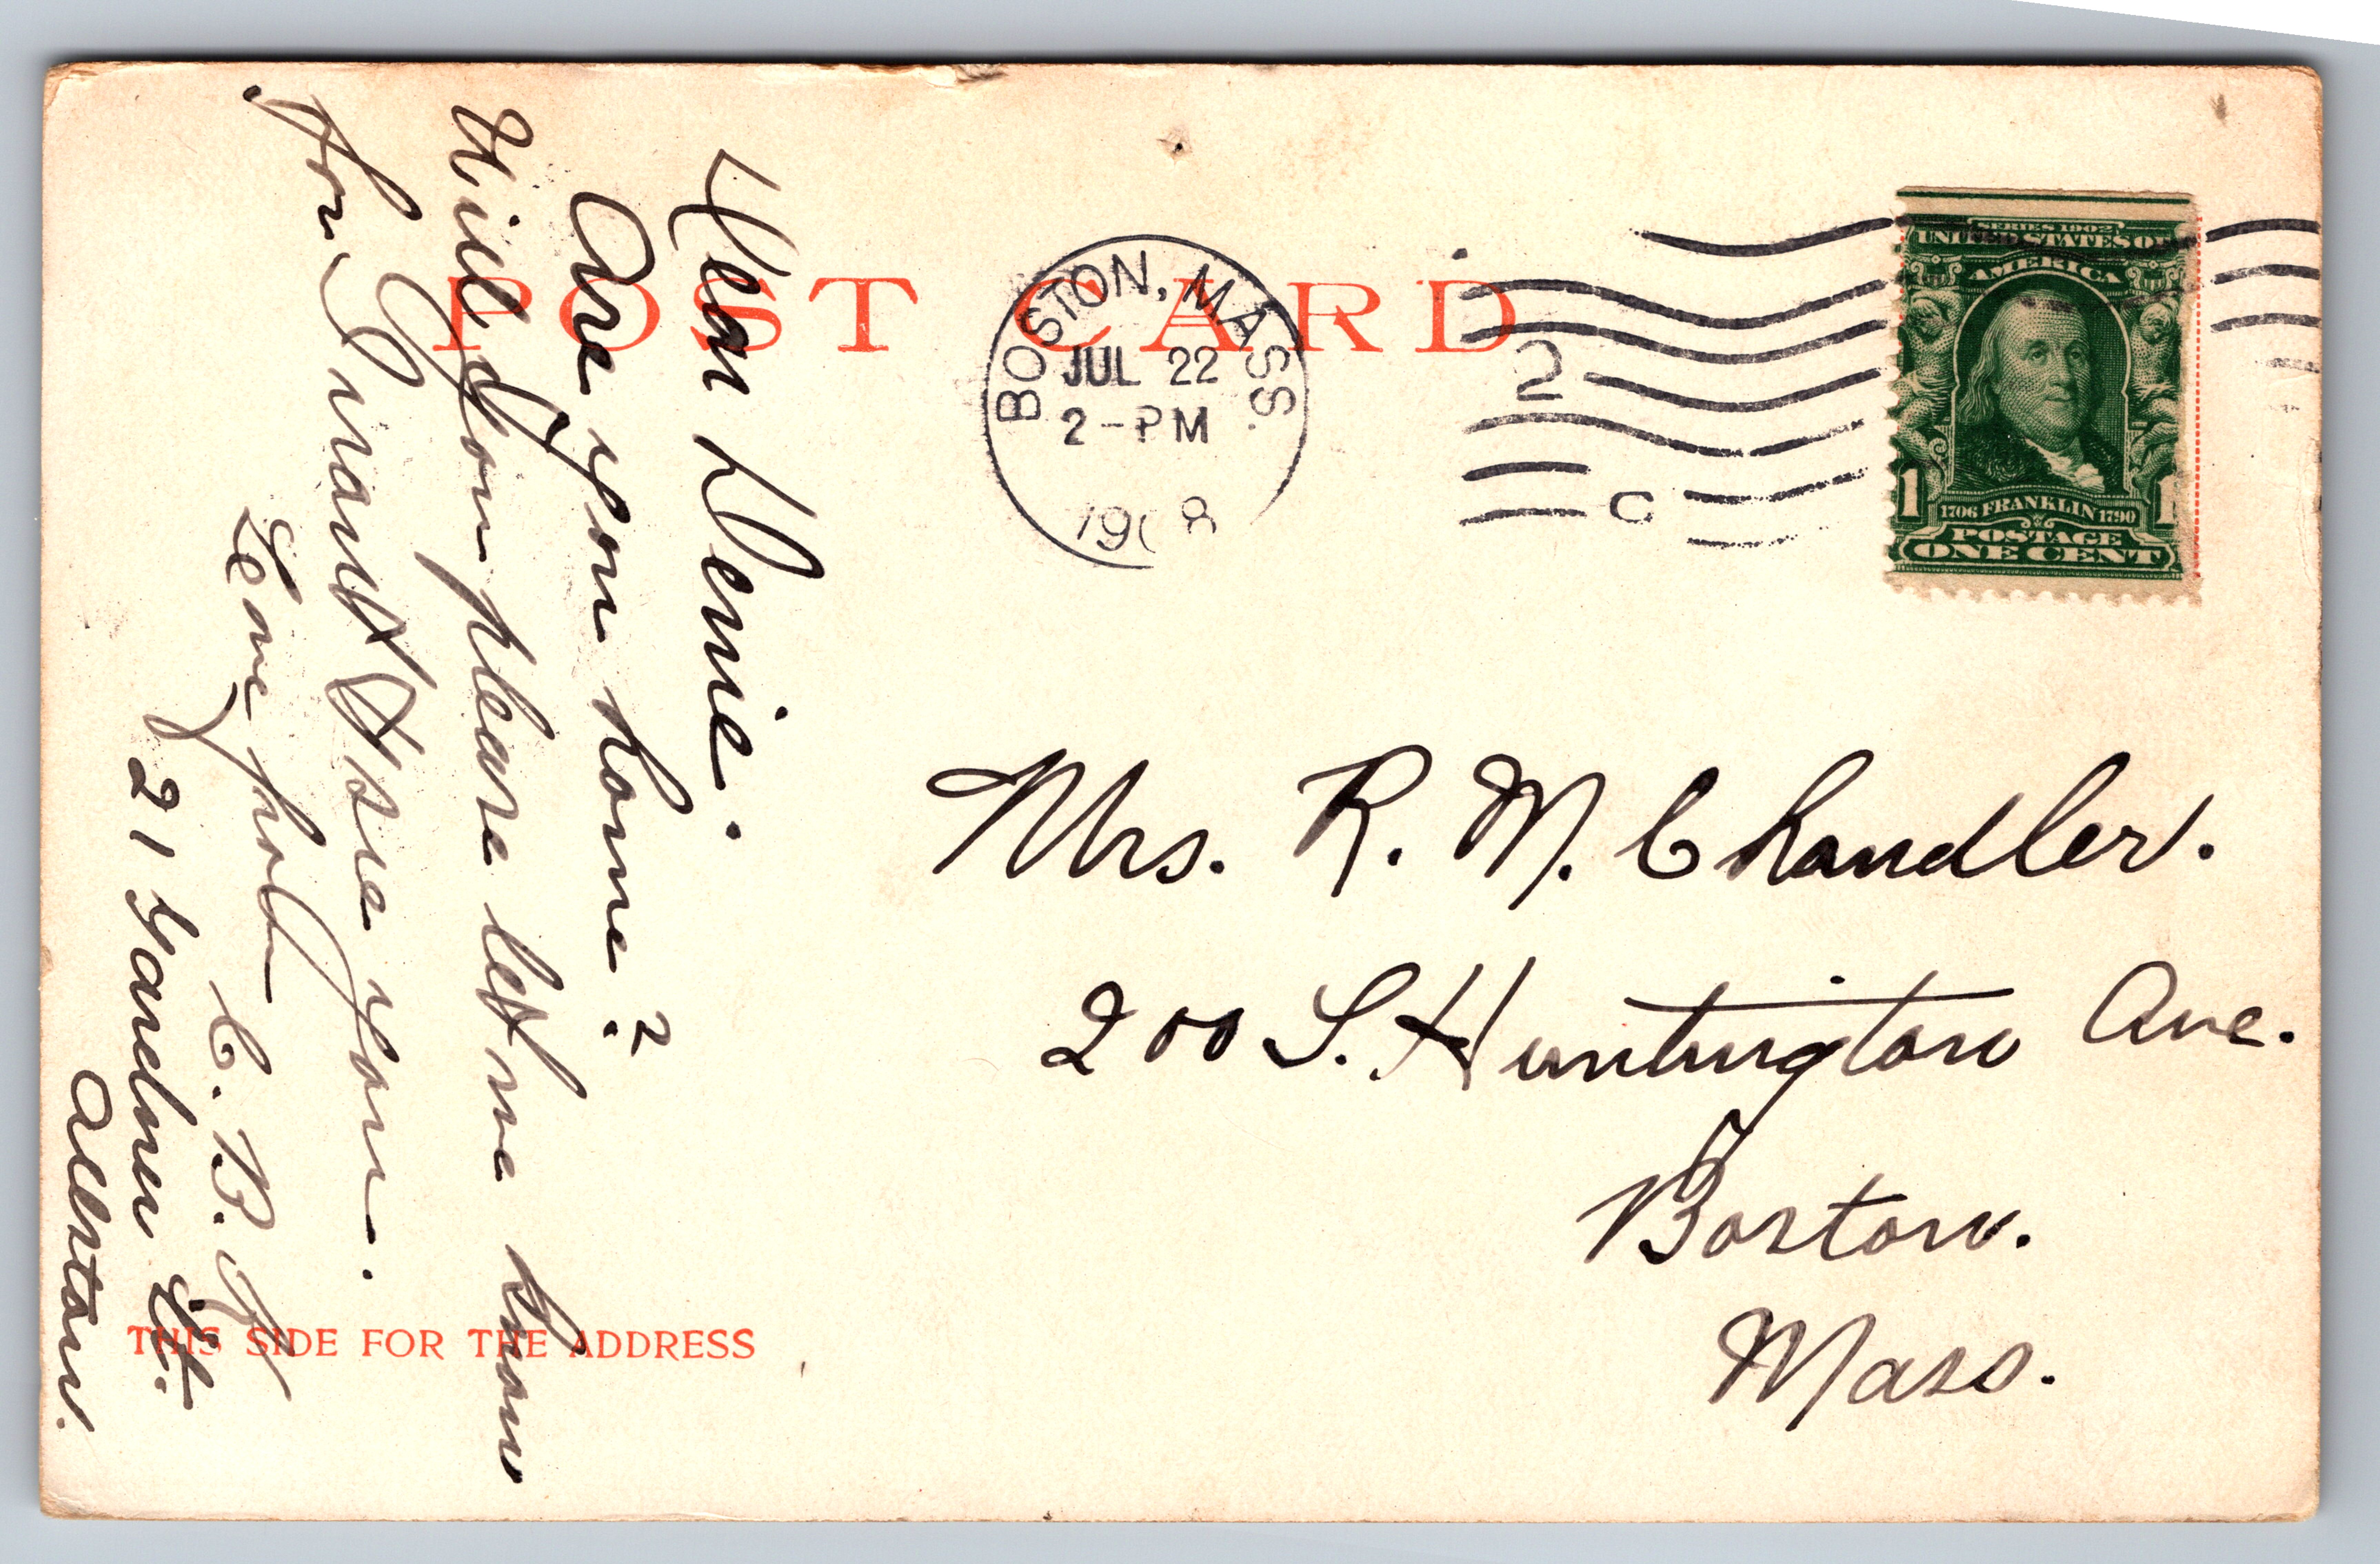 POST CARD
BOSTON, MASS.
JUL 22
2-PM
1908
2
C
SERIES 1902
UNITED STATES OF
AMERICA
1 1
1706 FRANKLIN 1790
POSTAGE
ONE CENT
Dear
Are you home?
Will you please let me know
for I want to see you.
C. B.
21 Gardner St.
Allston.
Mrs. R. M. Chandler.
200 S. Huntington Ave.
Boston.
Mass.
THIS SIDE FOR THE ADDRESS